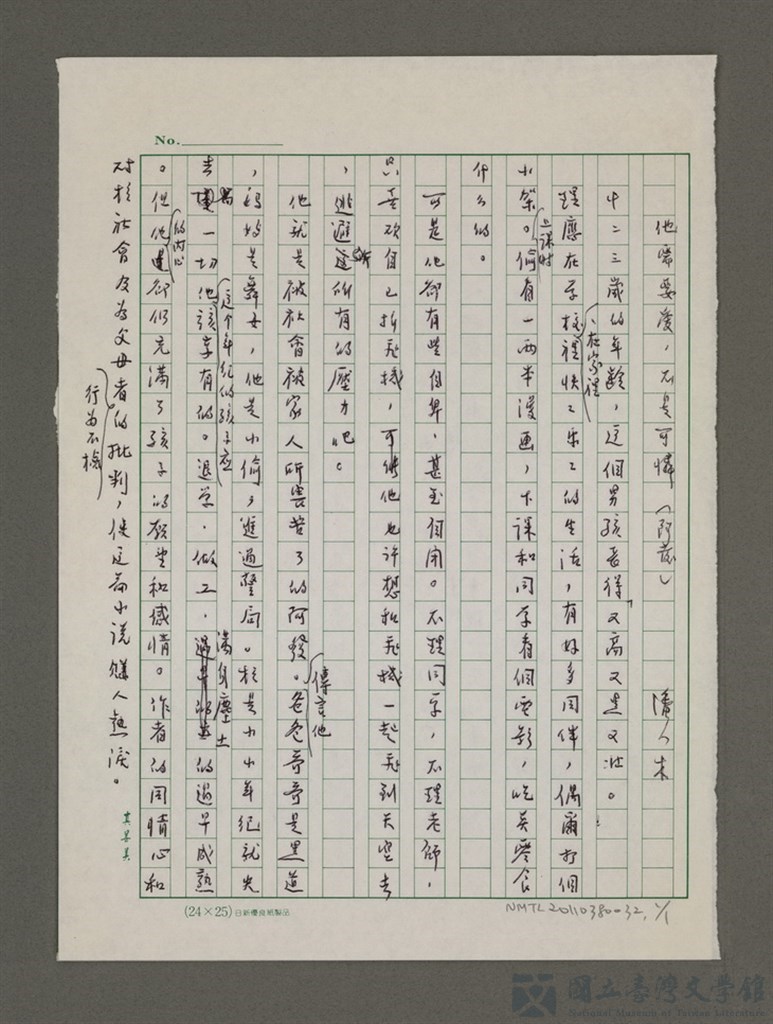 No.
他需要愛，不是可憐（阿發）　潘人木
十二三歲的年齡，這個男孩長得又高又黑又壯。
理應在学校裡、在家裡快快乐乐的生活，有好多同伴，偶爾打個
小架。上課时偷看一兩本漫画，下課和同学看個电影，吃吃零食
什么的。
可是他卻有些自卑，甚至自闭。不理同学，不理老師，
只喜欢自己折飛機，可能他也许想和飛機一起飛到天空去
，逃避这所有的壓力吧。
他就是被社會被家人所害苦了的阿發。傳言他爸爸哥哥是黑道
，媽媽是舞女，他是小偷，進過警局。於是小小年纪就失
去一切他这个年纪的孩子应該享有的。退学．做工．滿身塵土的過早成熟
。但他的內心卻仍充滿了孩子的願望和感情。作者的同情心和
对於社會及为父母者行为不檢的批判，使这篇小说賺人熱淚。
(24×25)日新優良紙製品
NMTL20110380032, 1/1
國立臺灣文學館
National Museum of Taiwan Literature